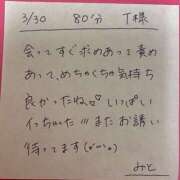 3/30 80分 T様
会ってすぐ求めあって責め
あって、めちゃくちゃ気持ち
良かったね♡いっぱい
イっちゃった!!!またお誘い
待ってます(*´ω`*)
みと